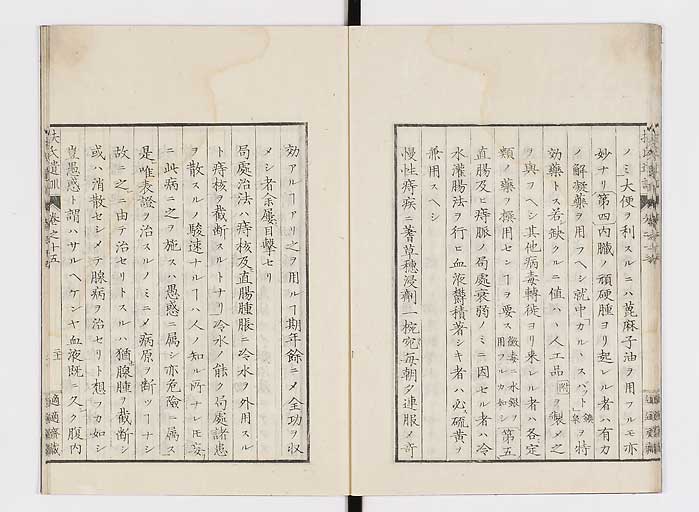 ノミ大便ヲ利スルニハ蓖麻子油ヲ用フルモ亦
妙ナリ第四內臟ノ頑硬腫ヨリ起レル者ハ有力
ノ解凝藥ヲ用フヘシ就中カルヽスバット鑛泉ヲ特
効藥トス若シ缺クルニ値ハヽ人工品附ヲ製メ之
ヲ與フヘシ其他病毒轉徙ヨリ來レル者ハ各定
類ノ藥ヲ撰用センヿヲ要ス黴毒ニ水銀ヲ用フルカ如シ第五
直腸及ヒ痔脈ノ局處衰弱ノミニ因セル者ハ冷
水灌腸法ヲ行ヒ血液鬱積著シキ者ハ必硫黄ヲ
兼用スヘシ
慢性痔疾ニ蓍草穗浸劑一椀宛每朝夕連服メ奇
効アルヿアリ之ヲ用ルヿ期年餘ニメ全功ヲ収
メシ者余屢目擊セリ
局處治法ハ痔核及直腸腫脹ニ冷水ヲ外用スル
ト痔核ヲ截斷スルトナリ冷水ノ能ク局處諸患
ヲ散スルノ駿速ナルヿハ人ノ知ル所ナレモ妄
ニ此病ニ之ヲ施スハ愚惑ニ属シ亦危險ニ属ス
是唯表證ヲ治スルノミニメ病原ヲ斷ツヿナシ
故ニ之ニ由テ治セリトスルハ猶腺腫ヲ截斷シ
或ハ消散セシメテ腺病ヲ治セリト想フカ如シ
豈愚惑ト謂ハサルヘケンヤ血液既ニ久ク腹內
扶氏遺訓 卷之十五
二十
適適齋藏